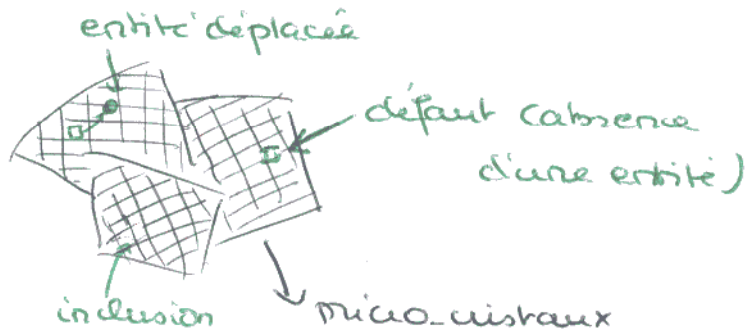 entité déplacée
défaut (absence
d'une entité)
inclusion
micro-cristaux